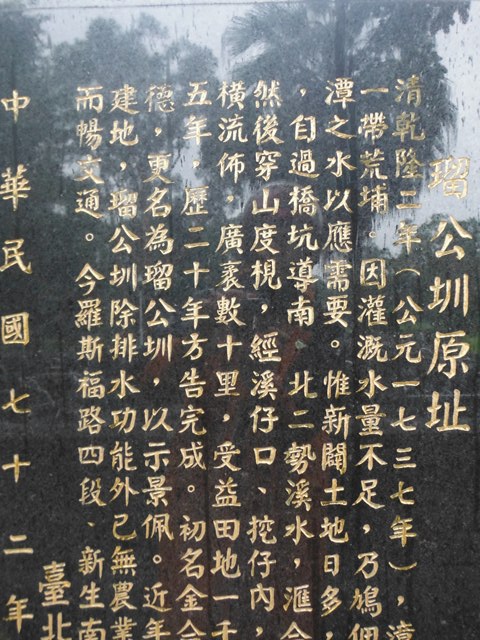 瑠公圳原址
清乾隆二年（公元一七三七年），
一帶荒埔。因灌溉水量不足，乃鳩佃
潭之水以應需要。惟新闢土地日多，
，自過橋坑導南北二勢溪水，滙合
然後穿山度梘，經溪仔口、挖仔內，
橫流佈，廣袤數十里，受益田地一千
五年，歷二十年方告完成。初名金合
德，更名為瑠公圳，以示景佩。近年
建地，瑠公圳除排水功能外已無農業
而暢交通。今羅斯福路四段、新生南
臺北
中華民國七十二年